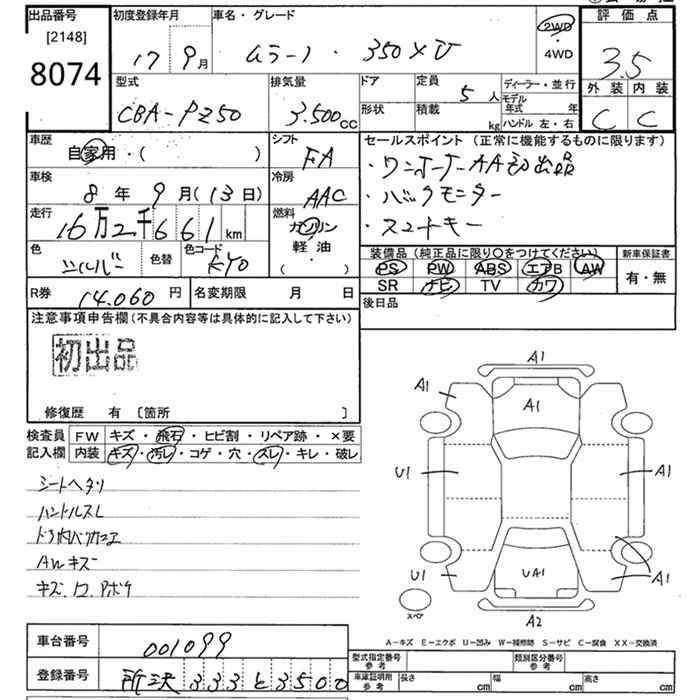 出品番号
[2148]
8074
初度登録年月
17 9月
車名・グレード
ムラーノ・350XV
2WD
・
4WD
評価点
3.5
型式
CBA-PZ50
排気量
3.500cc
ドア
形状
定員
5人
積載
kg
ディーラー・並行
モデル年式 年
ハンドル 左・右
外装 内装
C C
車歴
自家用・( )
シフト
FA
セールスポイント(正常に機能するものに限ります)
・ワンオーナーAA初出品
・バックモニター
・スマートキー
車検
8年 9月(13日)
冷房
AAC
走行
16万2千661km
燃料
ガソリン
軽油・
( )
色
シルバー
色替
色コード
KY0
装備品(純正品に限り〇をつけてください)
PS PW ABS エアB AW
SR ナビ TV カワ
新車保証書
有・無
R券 14.060円
名変期限 月 日
後日品
注意事項申告欄(不具合内容等は具体的に記入して下さい)
初出品
修復歴 有 [箇所 ]
検査員
記入欄
FW キズ・飛石・ヒビ割・リペア跡・×要
内装 キズ・汚レ・コゲ・穴・スレ・キレ・破レ
シートヘタリ
ハンドルスレ
AWキズ
A1
A1
A1
U1
A1
U1
UA1
A1
A2
スペア
A-キズ E-エクボ U-凹み W-補修跡 S-サビ C-腐食 XX-交換済
車台番号
001099
登録番号
所沢333と3500
型式指定番号
参考
類別区分番号
参考
車庫証明用
参考
長さ cm 幅 cm 高さ cm